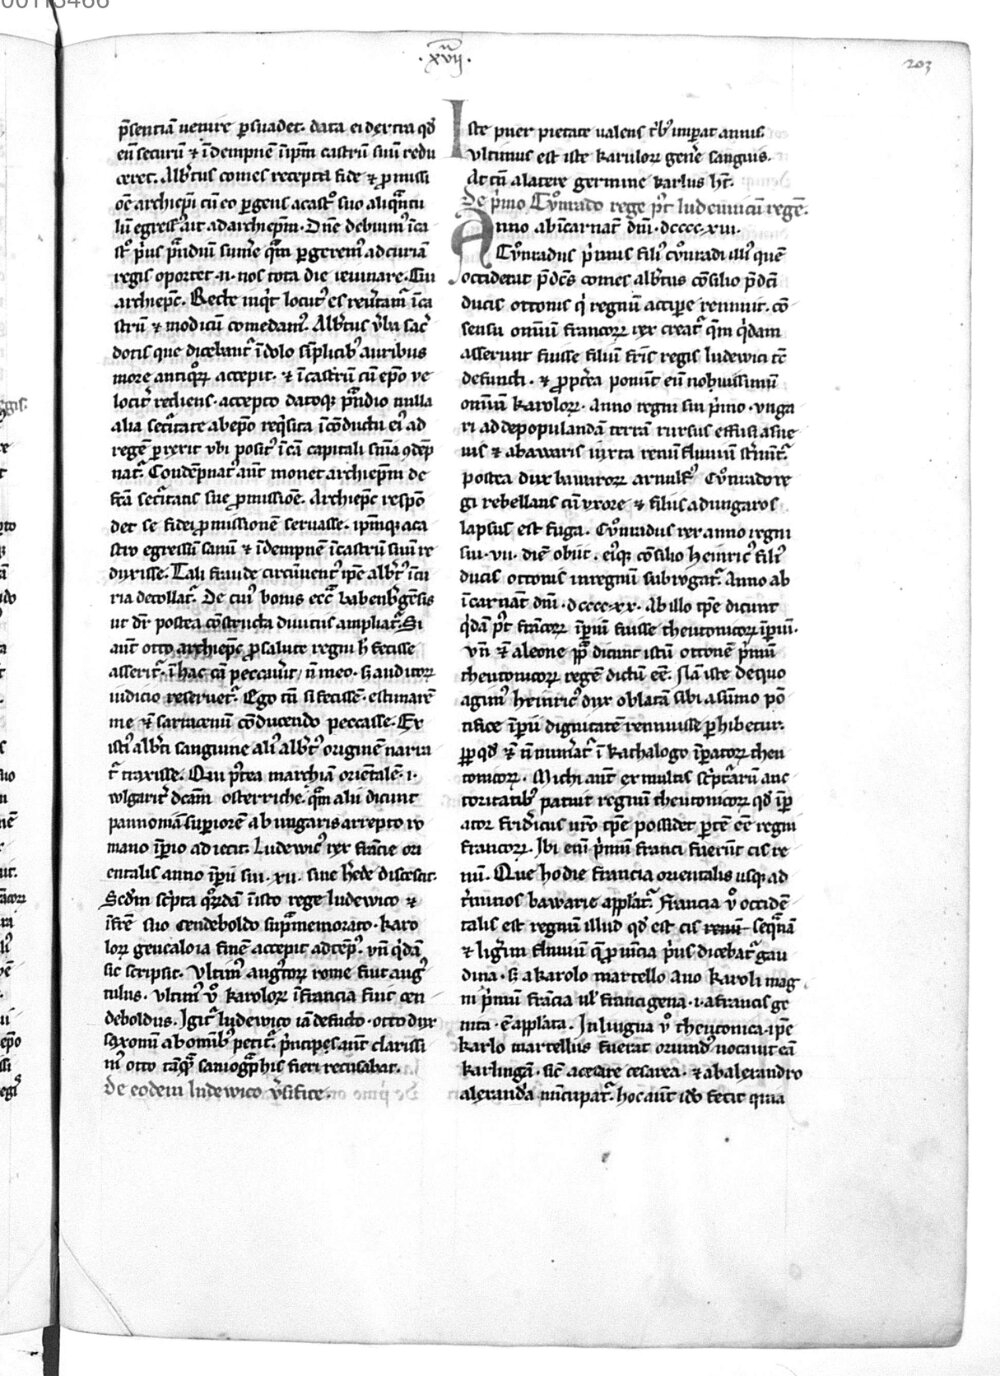 00113466
.xvii.
203
p̄sentiā venire ꝑsuadet. data ei dextra qd̄
eū securū ⁊ īdempnē ī ip̄m castrū suū redu
ceret. Albͭus comes recepta fide ⁊ ꝓmissi
oē archiep̄i cū eo ꝑgens a castͦ suo aliqͣntu
lū egressꝰ ait ad archiep̄m. Dn̄e
sͭ pͥus pͣndiū sumͤe qͣm ꝑgerem ad curiam
regis oportet .n. nos tota die ieiunare. Cui
archiep̄c. Recte inqͭ locutꝰ es reūtam̄ ī ca
strū ⁊ modicū comedamꝰ. Albͭus v̄ba sac̄
dotis que dicebant̄ ī dolo sīplicibꝰ auribus
more antiqͦꝝ accepit. ⁊ ī castrū cū ep̄o ve
locit̄ rediens. accepto datoqꝫ pͣndio nulla
alia sec̄itate ab ep̄o reqͥsita ī cōductu eiꝰ ad
regē ꝑrexit vbi positꝰ ī cā capitali snīa ꝯdēp
natꝰ. Condēpnatꝰ aūt monet archiep̄m de
sec̄itatis sue ꝓmissiōe. Archiep̄c respō
det se fidei ꝓmissionē seruasse. ip̄mqꝫ a ca
stro egressū sanū ⁊ īdempnē ī castrū suū re
duxisse. Tali fraude circūuentꝰ ip̄e albͭꝰ ī cu
ria decollat̄. De cuiꝰ bonis ecc̄a babenbͤgēsis
ut dr̄ postea cōstructa diuitiis ampliat̄. Si
aūt otto archiep̄c ꝓ salute regni h̄ fecisse
asserit̄. ī hac cā peccauͥt / n̄ meo. sꝫ auditoꝝ
iudicio reseruet̄. Ego tn̄ si fecissē. estimarē
me ⁊ sarracenū cōducendo peccasse. Ex
istiꝰ albͭi sanguine aliꝰ albͭꝰ originē narra
t̄ traxisse. Qui pͦtea marchiā orientalē .i.
wlgarit̄ dc̄am osterriche. qͣm alii dicunt
pannoniā suꝑiorē ab ungaris arrepto ro
mano īꝑio adiecit. Ludewicꝰ rex francie ori
entalis anno īꝑii sui .xii. sine hͤede discessit.
Scd̄m sc̄pta qͦꝝdā ī isto rege ludewico ⁊
ī frē suo cendeboldo supͣmemorato. karo
loꝝ genealoia finē accepit ad temp̄ꝰ. vn̄ qͥdā
sic scripsit. Vltimꝰ augͭoꝝ rome fuit augꝰ
tulus. vltimꝰ v̄ karoloꝝ ī francia fuit cen
deboldus. Igit̄ ludewico iā defūcto. otto dux
saxonū ab omībꝰ petit̄. pͥncipes aūt clarissi
mꝰ otto tāqͣ fieri recusabat.
De eodem ludewico v̄sifice.
Iste puer pietate valens tͥbꝰ impͣat annis.
Vltimus est iste karuloꝝ genͤe sanguis.
At cū a latere germine karlus hͭ.
De pͥmo Cōnrado rege pͦt ludewicū regē.
Anno ab īcarnat̄ dn̄i .dcccc.xiii.
Cōnradus pͥmus filiꝰ cōnradi illiꝰ quē
occiderat p̄dc̄s comes albͭus cōsilio p̄dc̄i
ducis ottonis qͥ regnū accipe rennuit. cō
sensu omniū francoꝝ rex creat̄ qͣm qͥdam
asserunt fuisse filiū frīs regis ludewici tc̄
defuncti. ⁊ ꝓpͭea ponūt eū nouissimū
omniū karoloꝝ. Anno regni sui pͥmo. vnga
ri ad depopulandā terrā rursus effusi a sue
uis ⁊ a bawaris iuxta renū fluuiū st̄nūt̄.
postea dux bawaroꝝ arnulfꝰ cōnrado re
gi rebellans cū vxore ⁊ filiis ad ungaros
lapsus est fuga. Cōnradus rex anno regni
sui .vii. diē obiit. eiꝰqꝫ cōsilio heinricꝰ filiꝰ
ducis ottonis in regnū subrogat̄. Anno ab
īcarnat̄ dn̄i .dcccc.xx. Ab illo tp̄e dicunt
qͥdā pͦt francoꝝ īꝑiū fuisse theutonicoꝝ īꝑiū.
vn̄ ⁊ a leone pp̄ dicunt istū ottonē pͥmū
theutonicoꝝ regē dictū eē. Nā iste de quo
agimꝰ heinricꝰ dux oblatā sibi a sūmo pō
tifice īꝑii dignitatē rennuisse ꝑhibetur.
ꝓp qd̄ ⁊ n̄ nūnat̄ ī kathalogo īpͣatoꝝ theu
tonicoꝝ. Michi aūt ex multis sc̄ptͣarū auc
toritatibꝰ patuit regnū theutonicoꝝ qd̄ īp
ator fridͥcus nr̄o tp̄e possidet ꝑtē eē regni
francoꝝ. Ibi eni pͥmū franci fuerūt cis re
nū. Que hodie francia orientalis usqꝫ ad
tͤminos bawarie appllat̄. Francia v̄ occidē
talis est regnū illud qd̄ est cis renū seqͣnā
⁊ ligͤim fluuiū qͣ ꝓuincia pͥus dicebat̄ gau
dina. sꝫ a karolo martello auo karoli mag
ni pͥmū francia ul̄ francigena .i. a francis ge
nita .ē appllata. In lingua v̄ theutonica .ip̄e
karlo martellus fuerat oriundꝰ vocauit eā
karlingā. sic̄ a cesare cesarea. ⁊ ab alexandro
alexandͥa nūcupat̄. hoc aūt iō fecit quia